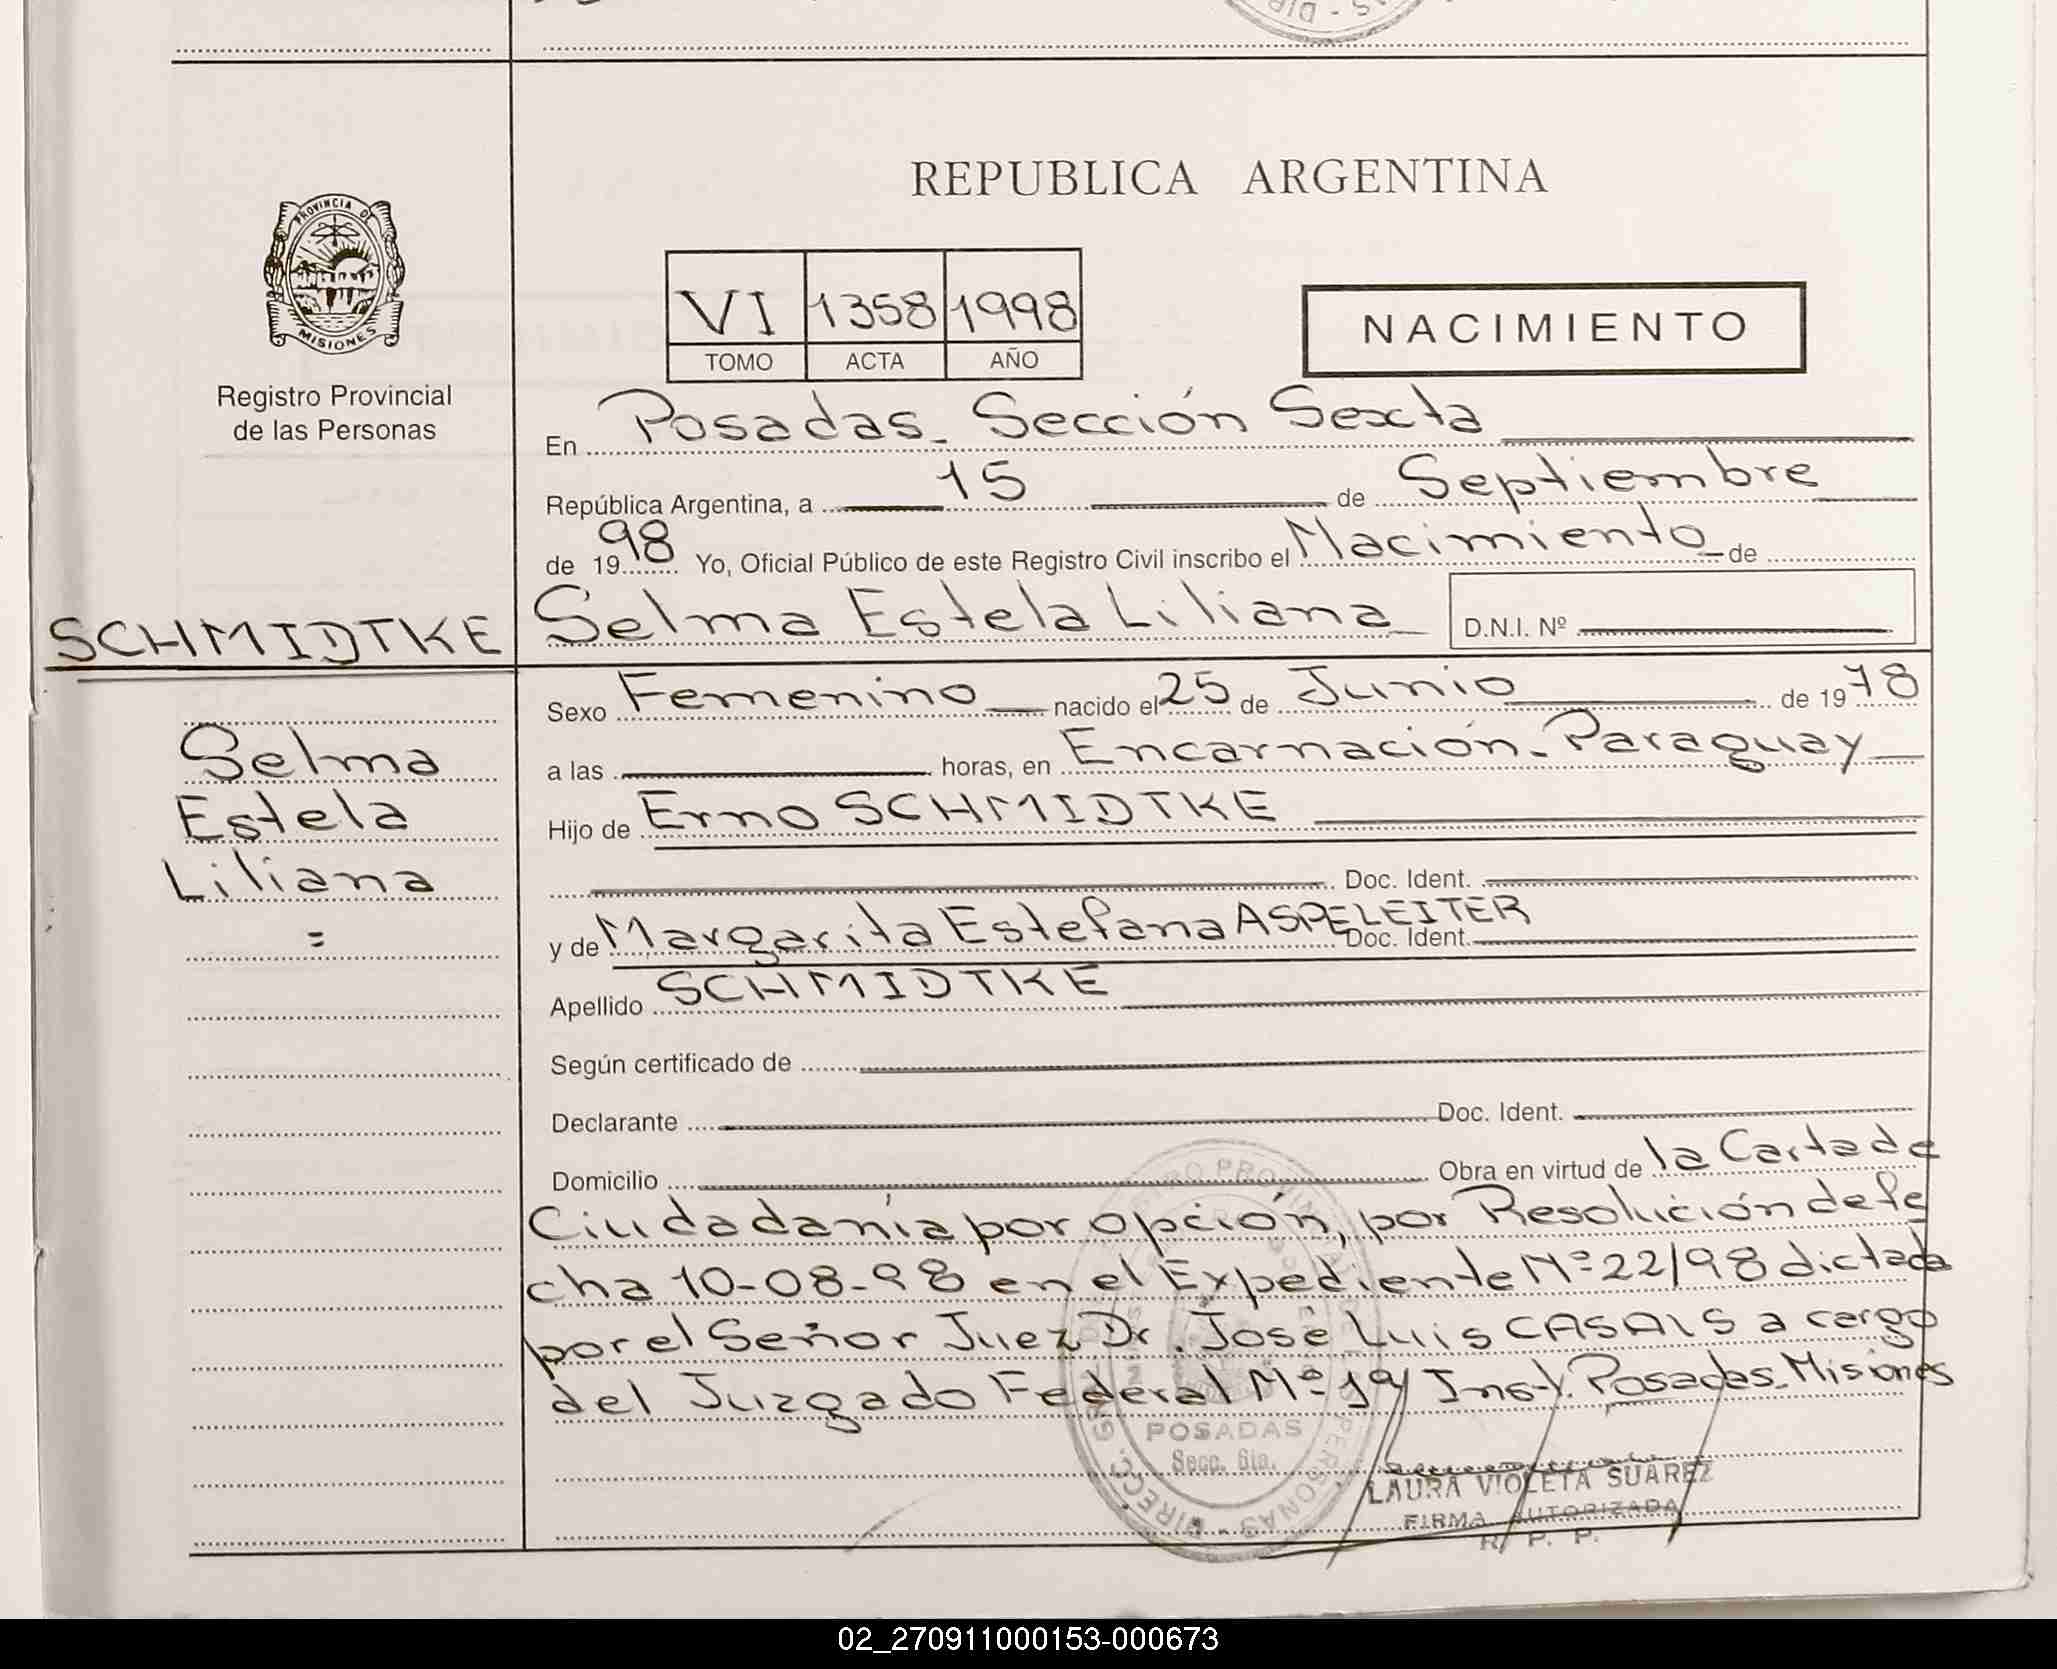 REPUBLICA ARGENTINA
PROVINCIA DE
MISIONES
Registro Provincial
de las Personas
VI 1358 1998
TOMO ACTA AÑO
NACIMIENTO
En Posadas - Sección Sexta
República Argentina, a 15 de Septiembre
de 1998 Yo, Oficial Público de este Registro Civil inscribo el Nacimiento de
SCHMIDTKE
Selma Estela Liliana D.N.I. Nº
Selma
Estela
Liliana
=
Sexo Femenino nacido el 25 de Junio de 1978
a las horas, en Encarnación - Paraguay
Hijo de Erno SCHMIDTKE
Doc. Ident.
y de Margarita Estefana ASPELEITER Doc. Ident.
Apellido SCHMIDTKE
Según certificado de
Declarante Doc. Ident.
Domicilio Obra en virtud de la Carta de
Ciudadanía por opción, por Resolución de fe
cha 10-08-98 en el Expediente Nº 22/98 dictada
por el Señor Juez Dr. José Luis CASALS a cargo
del Juzgado Federal Nº 1 Inst. Posadas - Misiones
POSADAS
Secc. 6ta.
LAURA VIOLETA SUAREZ
FIRMA AUTORIZADA
R. P. P.
02_270911000153-000673